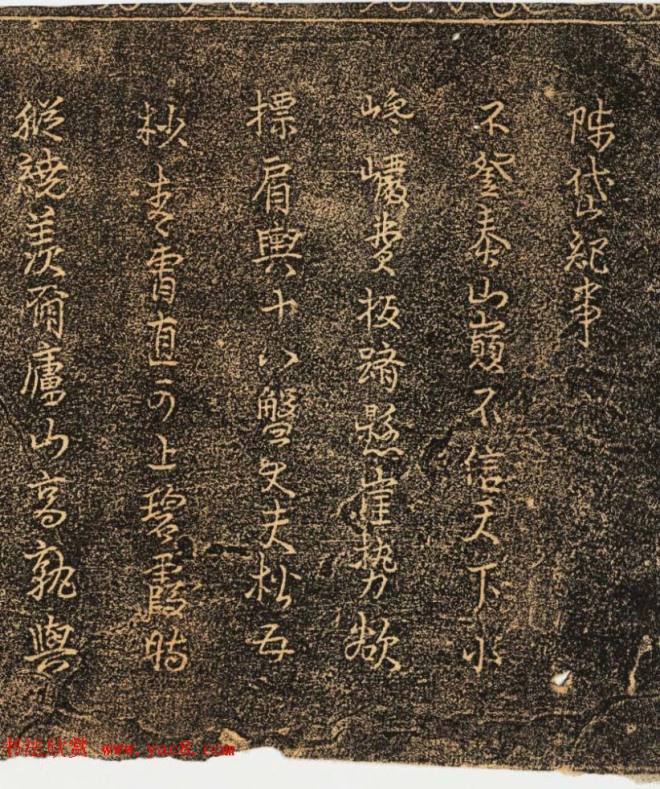 陟岱紀事
不登泰山巔不信天下小
巉巗費扳躋懸崖勢欲
摽肩輿十八盤夫松
杪青霄直可上碧霞時
縱繞羡爾廬山高孰與
书法欣赏 www.yac8.com